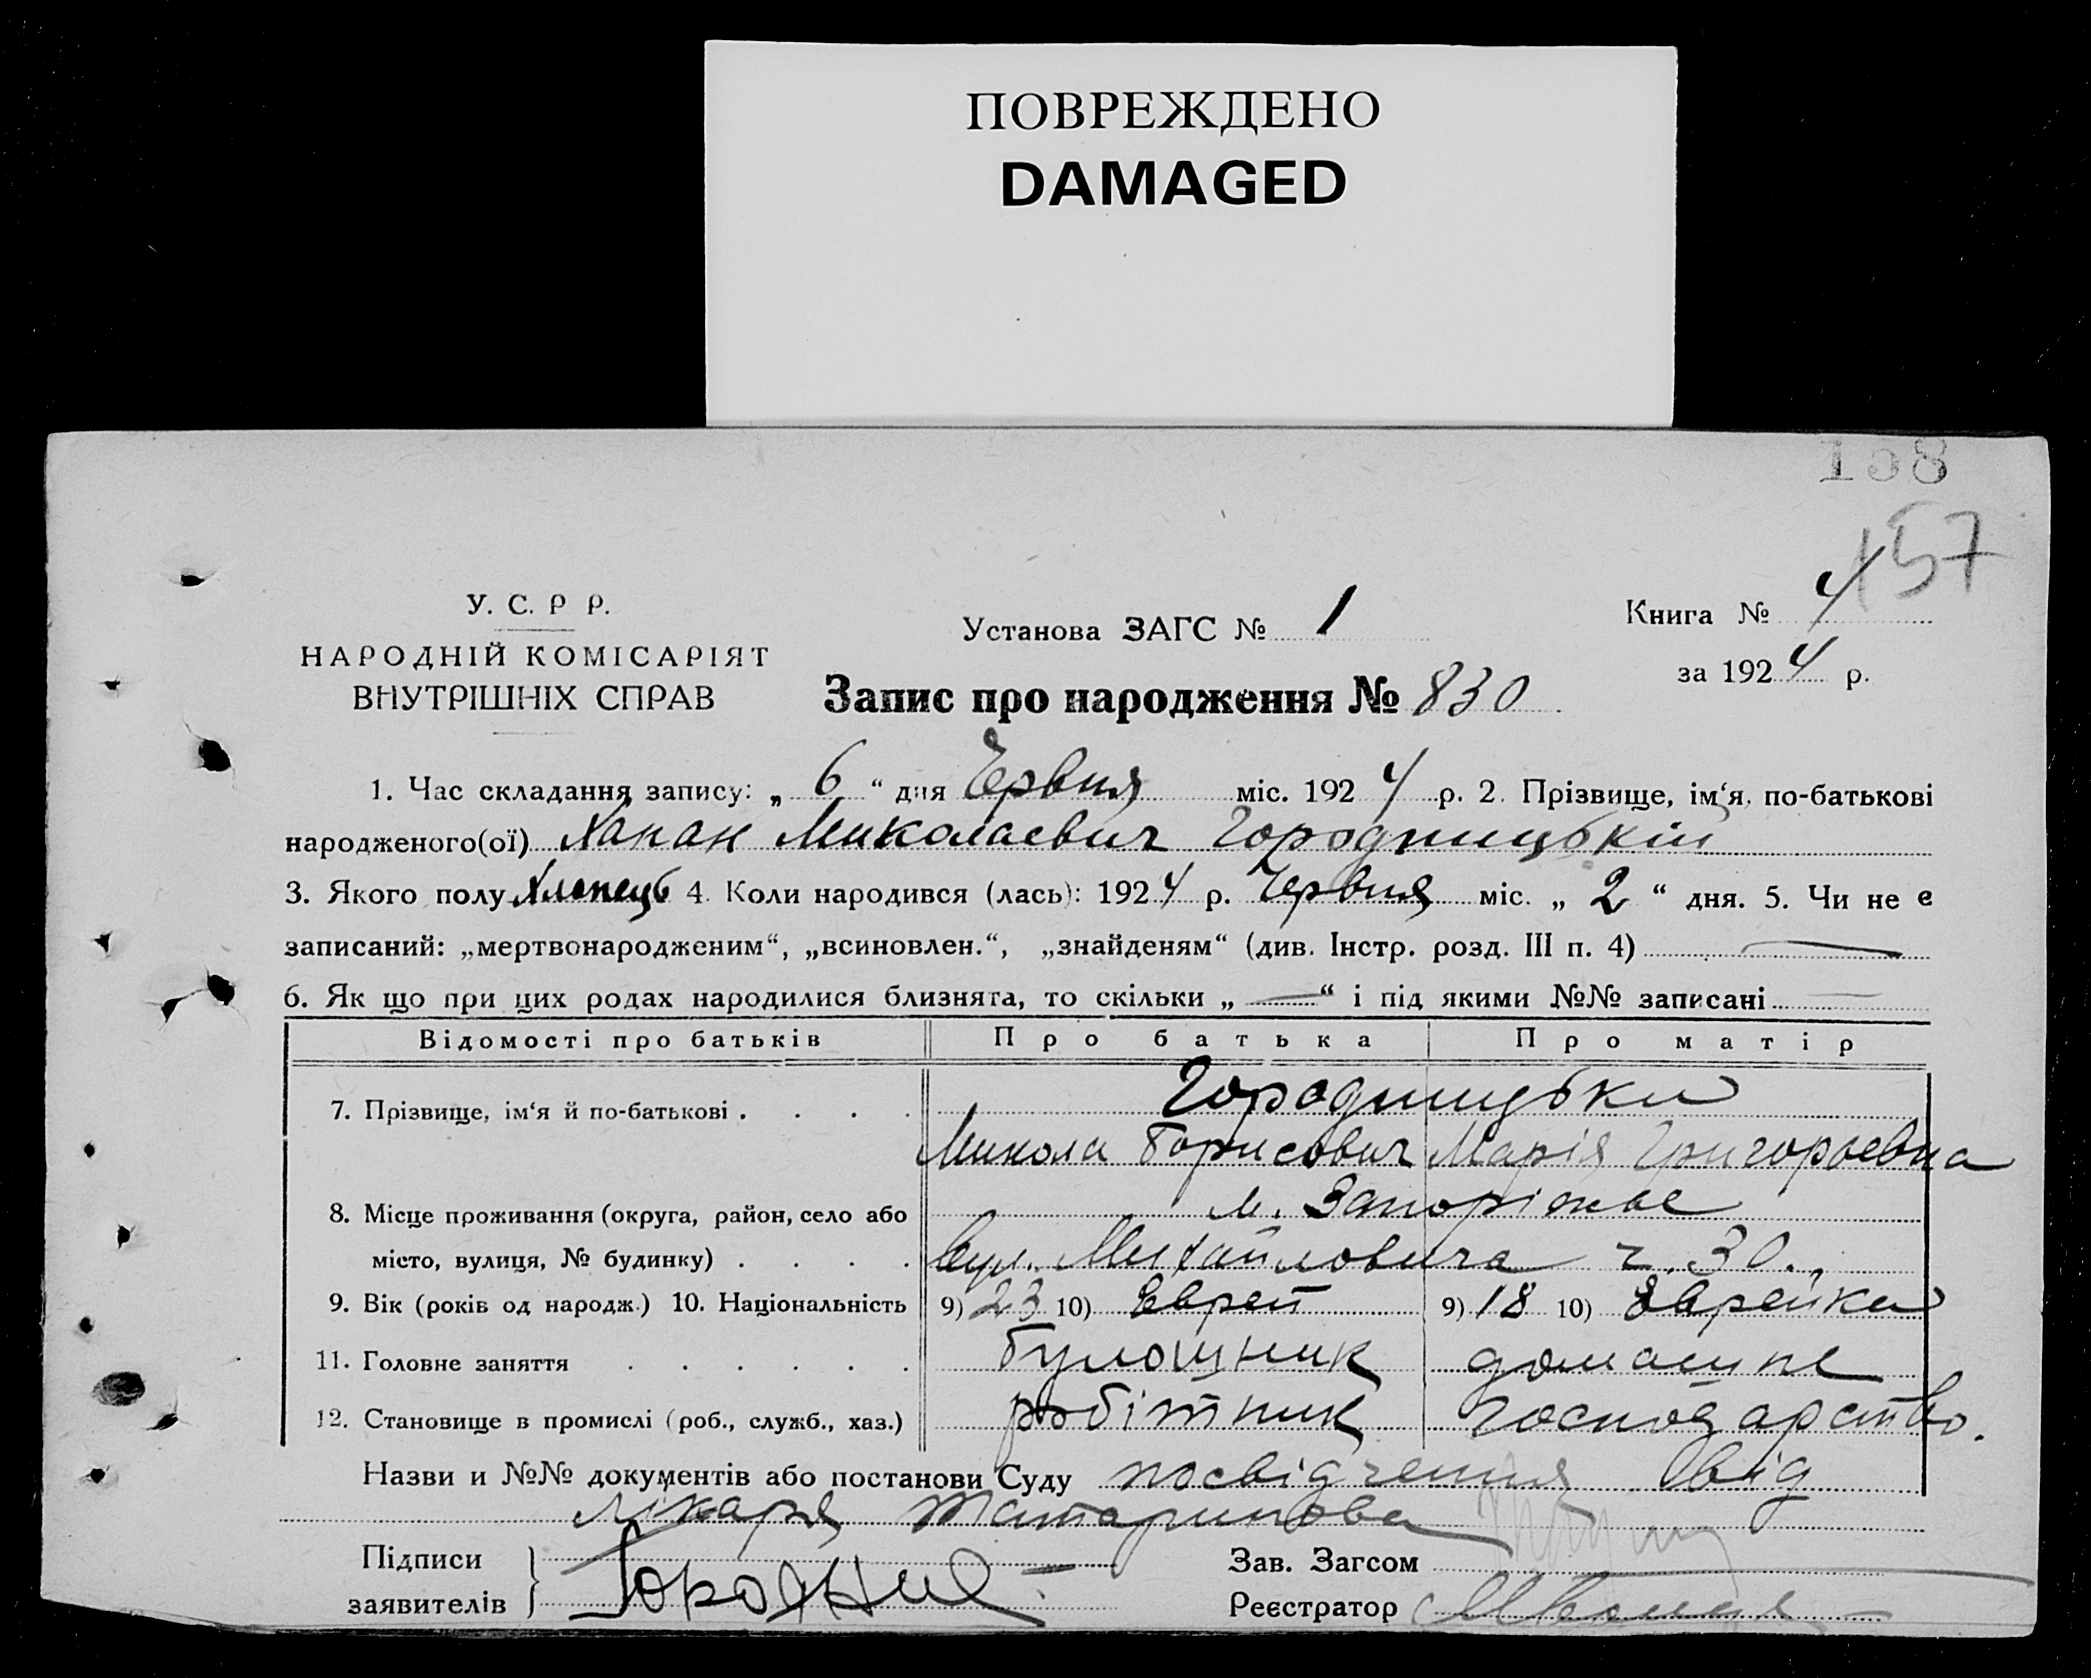 ПОВРЕЖДЕНО
DAMAGED
158
157
У. С. Р Р.
НАРОДНІЙ КОМІСАРІЯТ
ВНУТРІШНІХ СПРАВ
Установа ЗАГС № 1
Книга № 4
за 1924 р.
Запис про народження № 830
1. Час складання запису: „ 6 “ дня Червня міс. 1924 р. 2. Прізвище, ім‘я, по-батькові
народженого(ої) Ханан Миколаевич Городницькій
3. Якого полу Хлопець 4. Коли народився (лась): 1924 р. Червня міс. „ 2 “ дня. 5. Чи не є
записаний: „мертвонародженим“, „всиновлен.“, „знайденям“ (див. Інстр. розд. III п. 4) —
6. Як що при цих родах народилися близнята, то скільки „ — “ і під якими №№ записані —
Відомості про батьків Про батька Про матір
7. Прізвище, ім‘я й по-батькові . . . . Городницьки
Микола Борисович Марія Григорьевна
8. Місце проживання (округа, район, село або м. Запоріжье
місто, вулиця, № будинку) . . . . Вул. Михайловича ч. 30.
9. Вік (років од народж.) 10. Національність 9) 23 10) Еврей 9) 18 10) Еврейка
11. Головне заняття . . . . . . булошник домашне
12. Становище в промислі (роб., служб., хаз.) робітник господарство.
Назви и №№ документів або постанови Суду посвідчення від
лікаря Татаринова
Підписи
заявителів
Зав. Загсом
Реєстратор